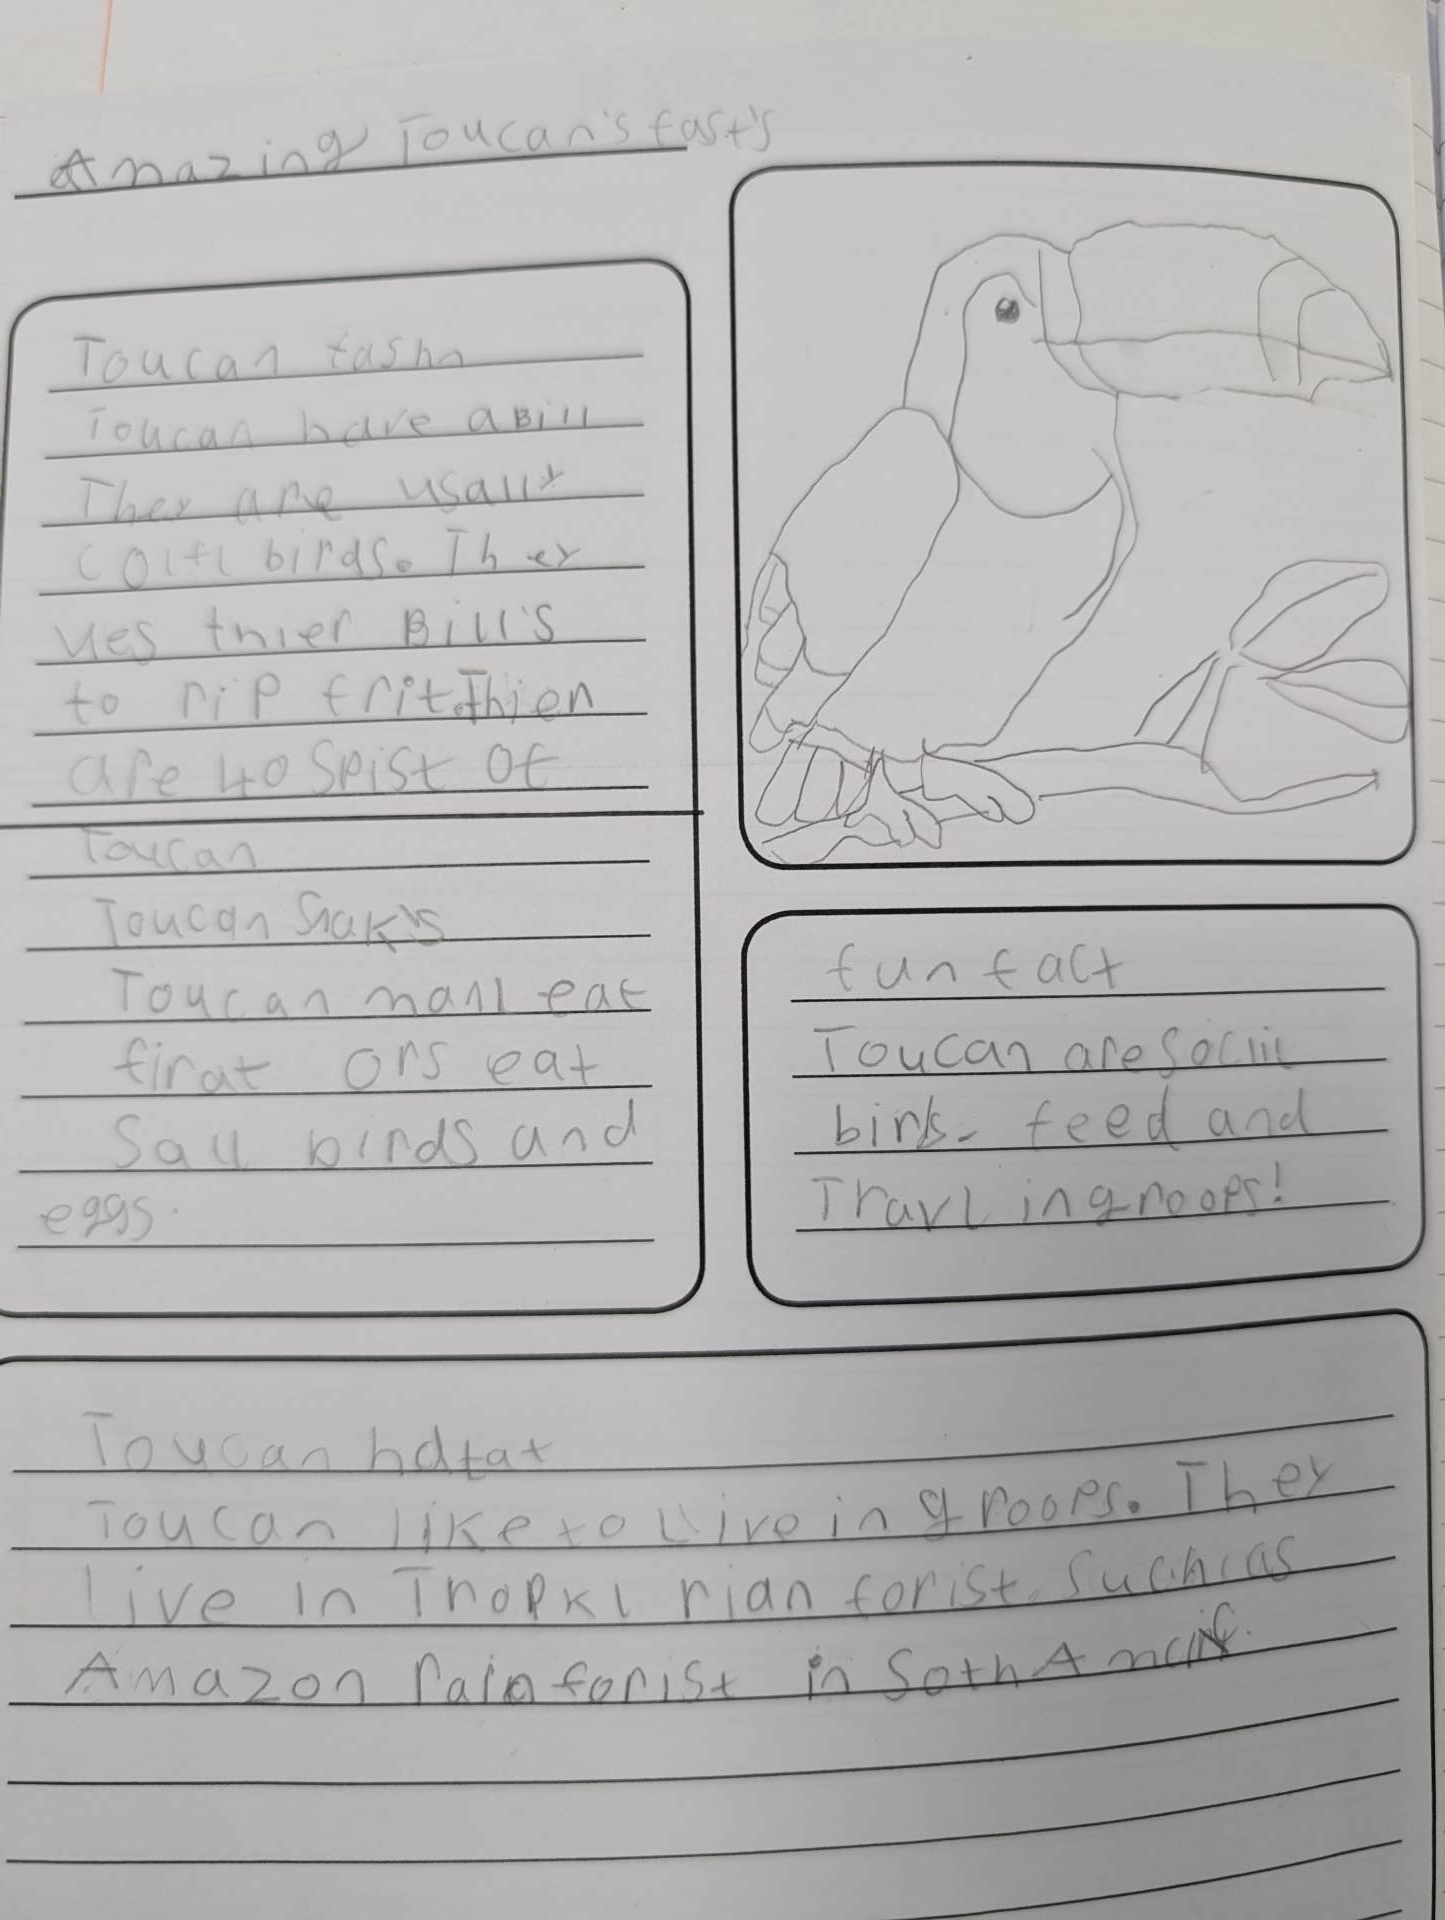 Amazing Toucan's fast's
Toucan fashn
Toucan have a Bill
They are usally
colfl birds. They
ues thier Bill's
to rip frit. Thien
are 40 Spist of
Toucan
Toucan Snak's
Toucan manl eat
firat ors eat
Sall birds and
eggs.
fun fact
Toucan are Sociii
birds. feed and
Travl in groops!
Toucan hdtat
Toucan like to Live in groops. They
live in Tropkl rian forist. Such as
Amazon rain forist in Soth